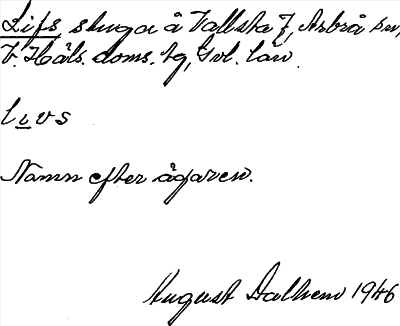 Lifs stuga å Vallsta 7, Arbrå sn,
V. Häls. doms. tg, Gvl. län.
livs
Namn efter ägaren.
August Dalhem 1946